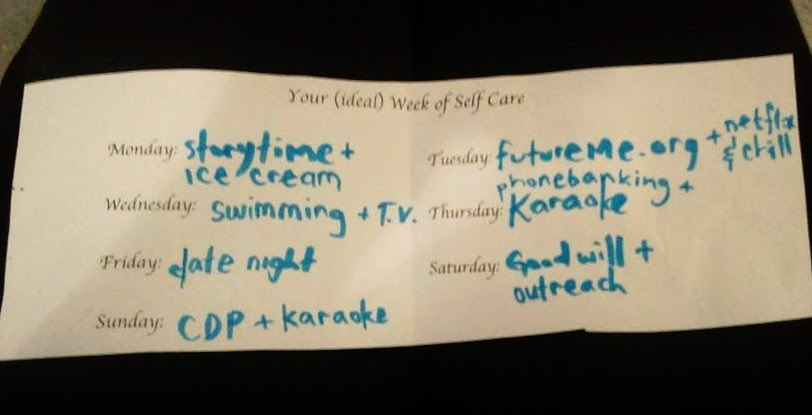 Your (ideal) Week of Self Care
Monday: storytime +
ice cream
Tuesday: futureme.org + netflix
& chill
Wednesday: swimming + T.V.
phonebanking +
Thursday: Karaoke
Friday: date night
Saturday: Goodwill +
outreach
Sunday: CDP + karaoke